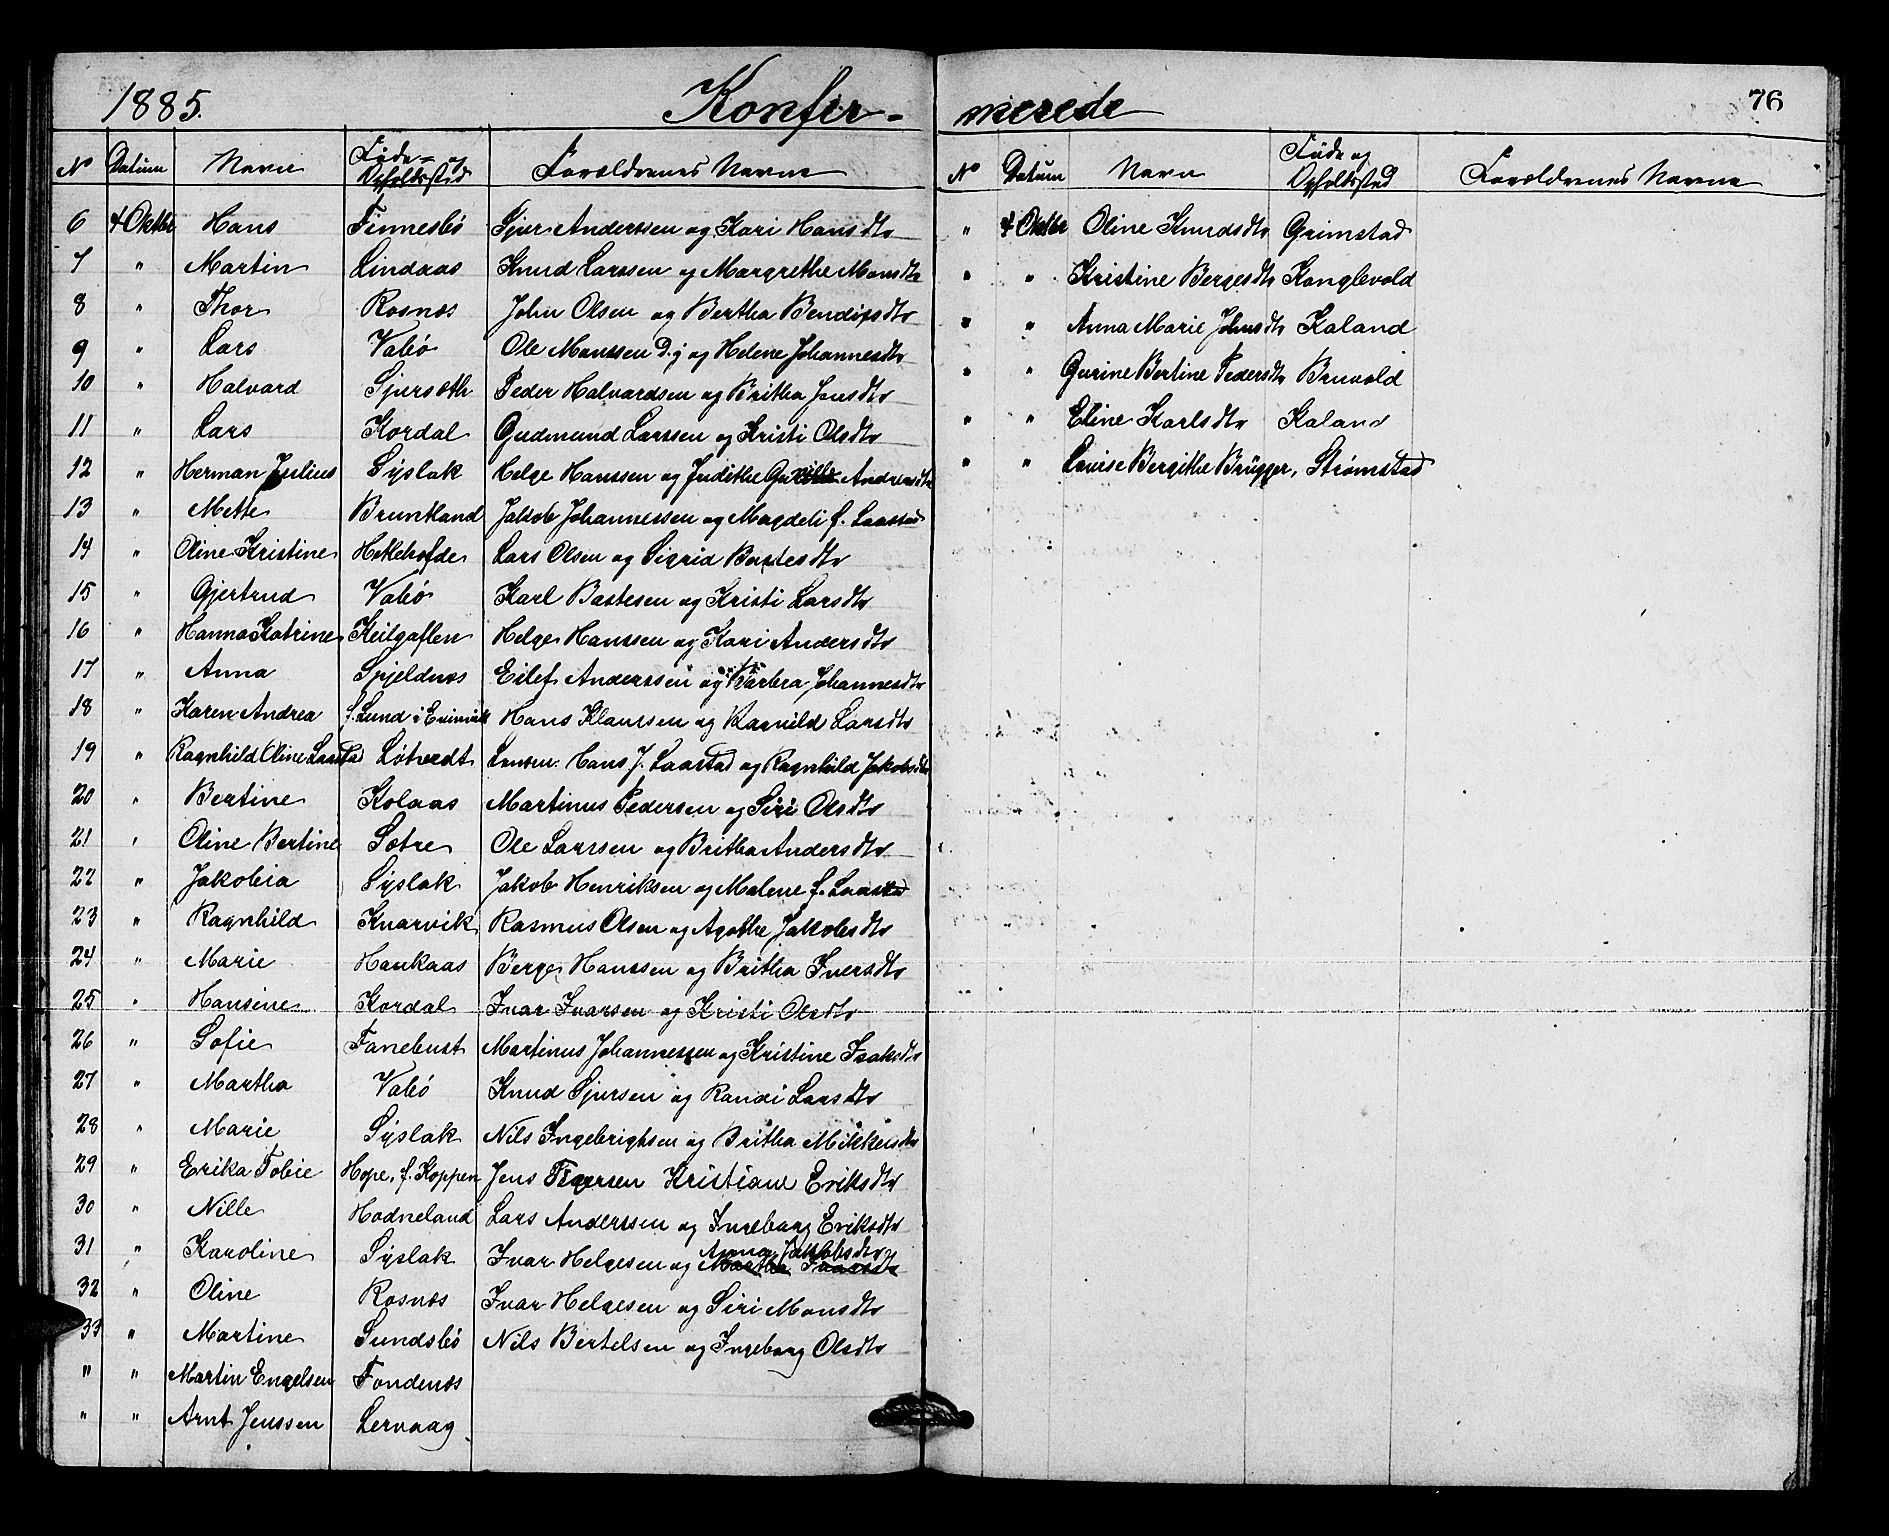 1885. Konfir-
No Datum Navn Føde- og Opholdssted Forældrenes Navne
6 4 Oktbr Hans Finnesbø Sjur Anderssen og Kari Hansdtr
7 " Martin Lindaas Knud Larssen og Margrethe Monsdtr
8 " Thor Rosnæs John Olsen og Bertha Bendixsdtr
9 " Lars Vabø Ole Monssen D.y og Helene Johannesdtr
10 " Halvard Sjursæth Peder Halvardsen og Britha Jonsdtr
11 " Lars Kordal Gudmund Larssen og Kristi Olsdtr
12 " Herman Julius Syslak Helge Hanssen og Judithe Andreasdtr
13 " Mette Bruntland Jakob Johannessen og Magdeli f. Laastad
14 " Oline Kristine Hekehofde Lars Olsen og Sigrid Bastesdtr
15 " Gjertrud Vabø Karl Bastesen og Kristi Larsdtr
16 " Hanna Katrine Keilgaflen Helge Hanssen og Kari Andersdtr
17 " Anna Spjeldnæs Eilef Anderssen og Barbra Johannesdtr
18 " Karen Andrea f. Lund i Hans Klaussen og Ragnild Larsdtr
19 " Ragnhild Oline Laastad Løtvedt Hans J. Laastad og Ragnhild Jakobsdtr
20 " Bertine Kolaas Martinus Pedersen og Siri Olsdtr
21 " Oline Bertine Sætre Ole Larssen og Britha Andersdtr
22 " Jakobia Syslak Jakob Henriksen og Malene f. Laastad
23 " Ragnhild Knarvik Rasmus Olsen og Agathe Jakobsdtr
24 " Marie Haukaas Berge Hanssen og Britha Iversdtr
25 " Hansine Kordal Ivar Ivarsen og Kristi Olsdtr
26 " Sofie Fanebust Martinus Johannessen og Kristine Isaksdtr
27 " Martha Vabø Knud Sjursen og Randi Larsdtr
28 " Marie Syslak Nils Ingebrigtsen og Britha Mikkelsdtr
29 " Erika Tobie Hope, f. Koppen Jens Kristiane Eriksdtr
30 " Nille Hodneland Lars Anderssen og Ingeborg Eriksdtr
31 " Karoline Syslak Ivar Helgesen og Martha Ivarsdtr Anna Jakobsdtr
32 " Oline Rosnæs Ivar Helgesen og Siri Monsdtr
33 " Martine Sundsbø Nils Bertelsen og Ingeborg Olsdtr
" " Martin Engelsen Fondenæs
" " Arnt Jenssen Lervaag
merede 76
No Datum Navn Føde og Opholdssted Forældrenes Navne
" 4 Oktbr Oline Knudsdtr Grimstad
" " Kristine Bergesdtr Konglevold
" " Anna Marie Johnsdtr Kaland
" " Gurine Bertine Pedersdtr Bruvold
" " Eline Karlsdtr Kaland
" " Louise Bergithe Brügger, Strømstad